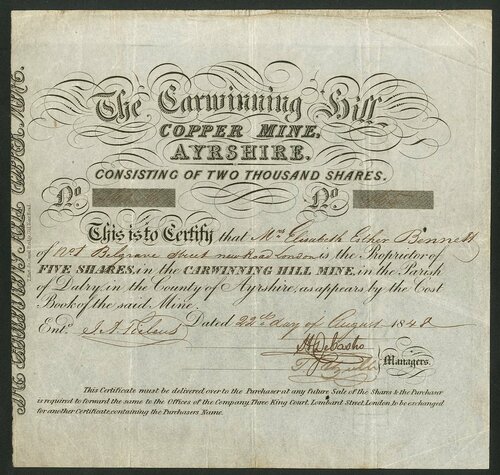 The Carwinning Hill
COPPER MINE,
AYRSHIRE.
CONSISTING OF TWO THOUSAND SHARES.
No. No.
This is to Certify that Mrs Elisabeth Esther Bennett
of No 1 Belgrave Street New Road London is the Proprietor of
FIVE SHARES, in the CARWINNING HILL MINE, in the Parish
of Dalry, in the County of Ayrshire, as appears by the Cost
Book of the said Mine.
Entd. Dated 22nd day of August 1848
Managers.
This Certificate must be delivered over to the Purchaser at any future Sale of the Shares & the Purchaser
is required to forward the same to the Offices of the Company, Three King Court, Lombard Street, London, to be exchanged
for another Certificate, containing the Purchasers Name.